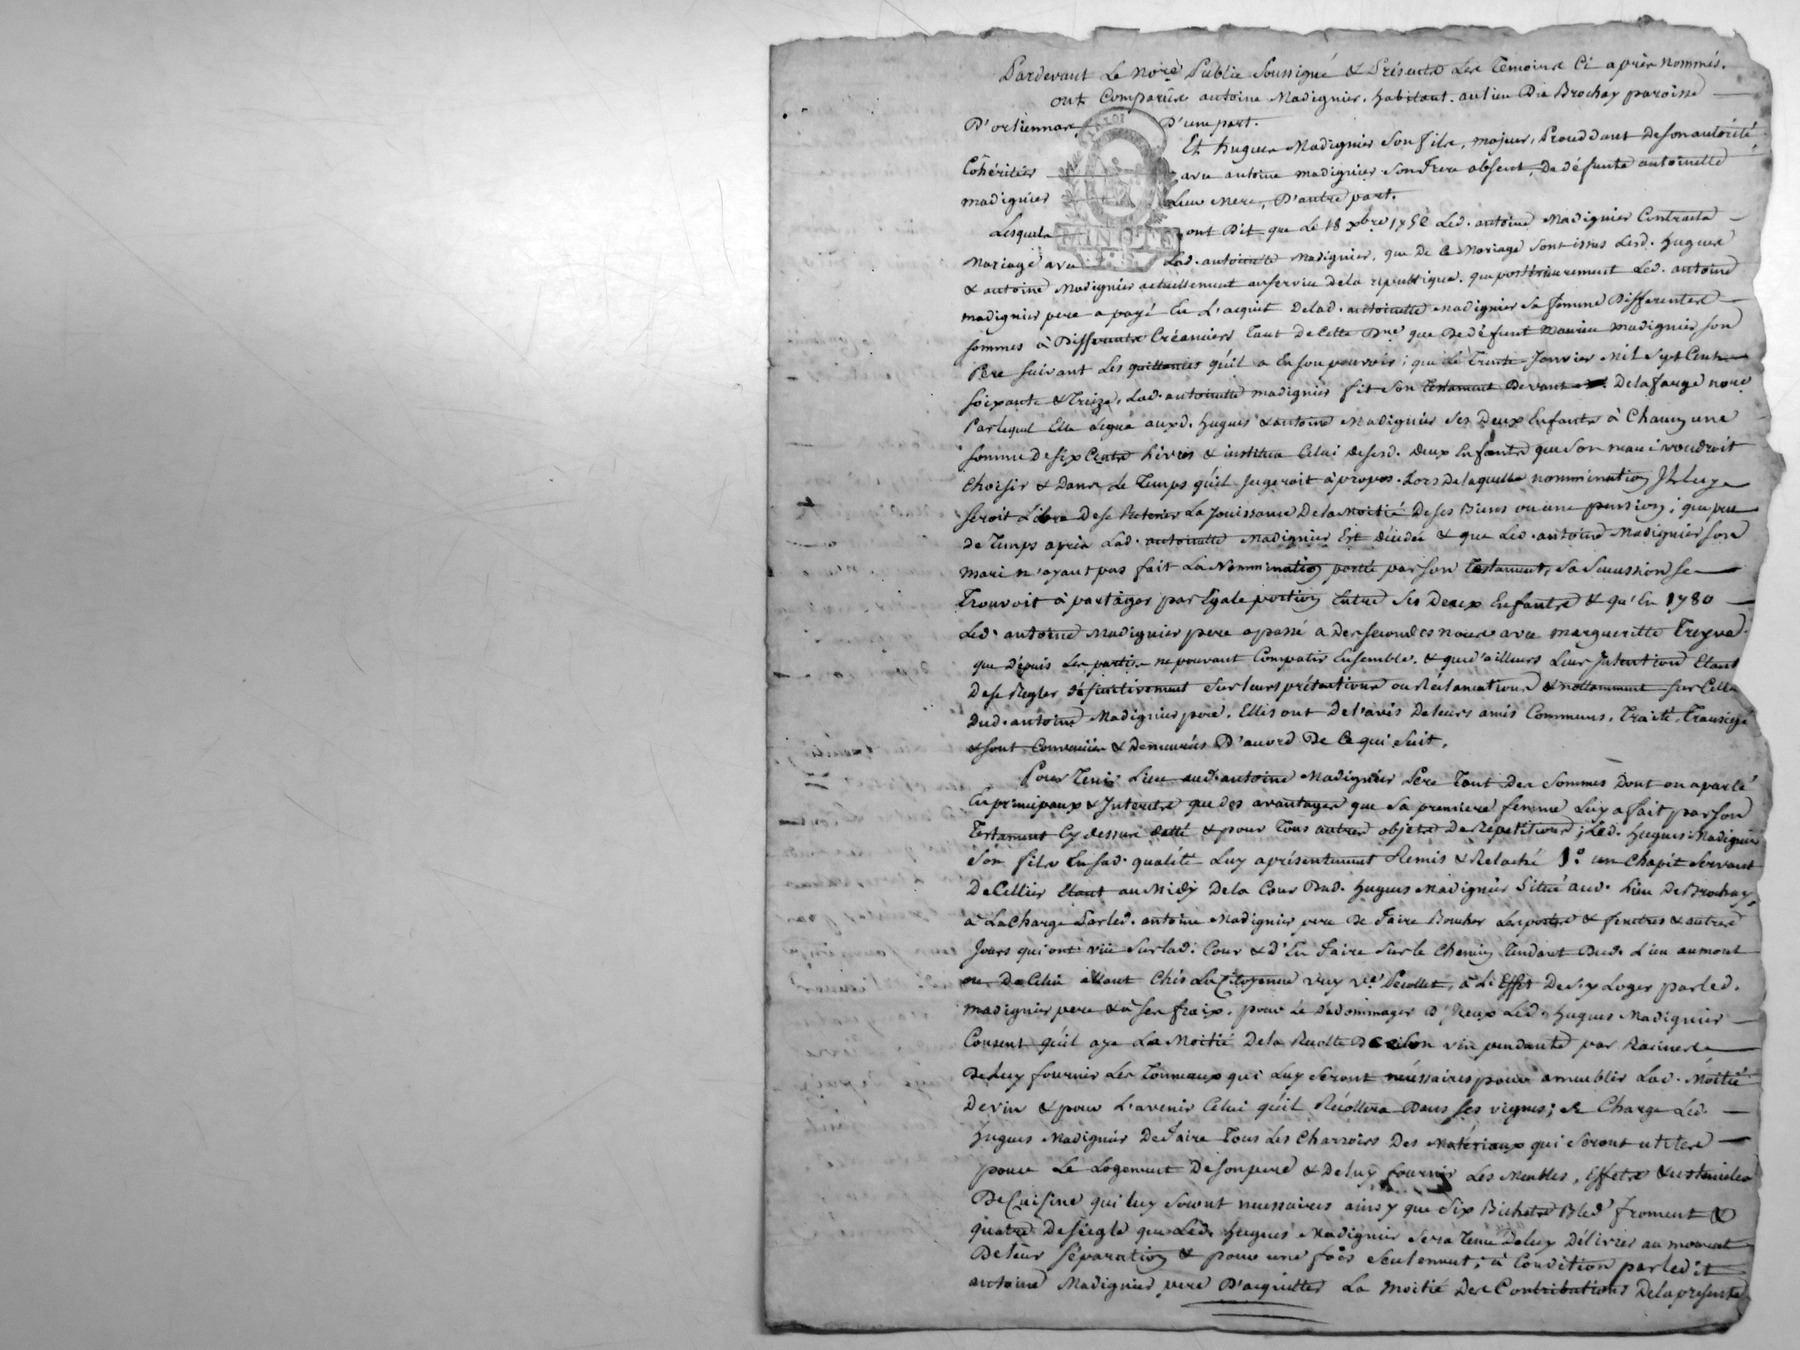 Pardevant Le Nore Public Soussigné & Présents Les Temoins Ci après nommés.
ont Comparûs antoine Madignier, habitant au lieu De Brochay paroisse
D'orliennas, D'une part.
Et hugues Madignier Son fils, majeur, Procédant de son autorité,
Cohéritier avec antoine madignier Son frere absent, De défunte antoinette
madignier Leur Mere, D'autre part.
Lesquels ont Dit que Le 18 xbre 1752 Led. antoine Madignier Contracta
Mariage avec Lad. antoinette Madignier, que De Ce Mariage Sont issus Lesd. hugues
& antoine Madignier actuellement au service de la republique. que postérieurement Led. antoine
madignier pere a payé En L'acquit De lad. antoinette Madignier Sa femme Differentes
sommes à Differents Créanciers tant De Cette Dre que De défunt madignier son
Pere suivant Les quittances qu'il a En son pouvoir; que Le Trente Janvier Mil Sept Cent
soixante & Treize, Lad. antoinette madignier fit Son Testament Devant Me Delafarge nore
Par lequel Elle Légua auxd. hugues & antoine Madignier Ses Deux Enfants à Chacun une
somme De six Cents livres & institua Celui Desesd. Deux Enfants que Son mari voudroit
Choisir & Dans Le Temps qu'il Jugeroit à propos. Lors De laquelle nommination Il Luy
seroit Libre De se Retenir La Jouissance De la Moitié De ses Biens ou une pension; que peu
de Temps après Lad. antoinette Madignier Est décédée & que Led. antoine Madignier son
mari n'ayant pas fait La Nommination porté par son Testament, Sa Succession se
Trouvoit à partager par Egale portion Entre Ses Deux Enfants & qu'En 1780
Led. antoine Madignier pere a passé a Des secondes noces avec margueritte Treyve
que Depuis Les parties ne pouvant Compatir Ensemble, & que d'ailleurs Leur Intention Etant
De se Regler définitivement Sur leurs prétentions ou Réclamations & nottamment sur Celles
Dud. antoine Madignier pere, Elles ont De l'avis De leurs amis Communs, Traité, Transigé
& sont Convenües & Demeurées D'acord De Ce qui Suit.
Pour Tenir Lieu aud. antoine Madignier Pere Tant Des Sommes Dont on a parlé
En principaux & Interets que Des avantages que Sa premiere femme Luy a fait par son
Testament Cy dessus datté & pour Tous autres objets De Repetitions; Led. hugues Madignier
Son fils En sad. qualité Luy a présentement Remis & Relaché 1º. un Chapit Servant
De Cellier Etant au Midy De la Cour Dud. hugues Madignier Situé aud. Lieu De Brochay,
à La Charge Par led. antoine Madignier pere De faire Boucher Les portes & fenetres & autres
Jours qui ont vüe Sur lad. Cour & d'En faire Sur le Chemin Tendant Dud. Lieu au mont
ou De Celui allant Chés La Citoyenne vve Pecollet, à L'Effet De s'y Loger par led.
madignier pere & à ses fraix. pour Le Dédommager D'Iceux Led. hugues Madignier
Consent qu'il aye La Moitié De la Recolte De Son vin pendante par Racines
De Luy fournir Les Tonneaux qui Luy Seront nécéssaires pour ameublir Lad. Moitié
De vin & pour L'avenir Celui qu'il Récoltera Dans ses vignes; se Charge Led.
hugues Madignier De faire Tous Les Charrois Des Matériaux qui Seront utiles
pour Le Logement De son pere & De luy fournir Les Meubles, Effets & ustenciles
De Cuisine qui luy Seront necessaires ainsy que Six Bichets Bled froment &
quatre De Seigle que Led. hugues Madignier Sera Tenu De luy Délivrer au moment
De leur Séparation & pour une fois Seulement; à Condition par ledit
antoine Madignier pere D'acquitter La Moitié Des Contributions De la présente